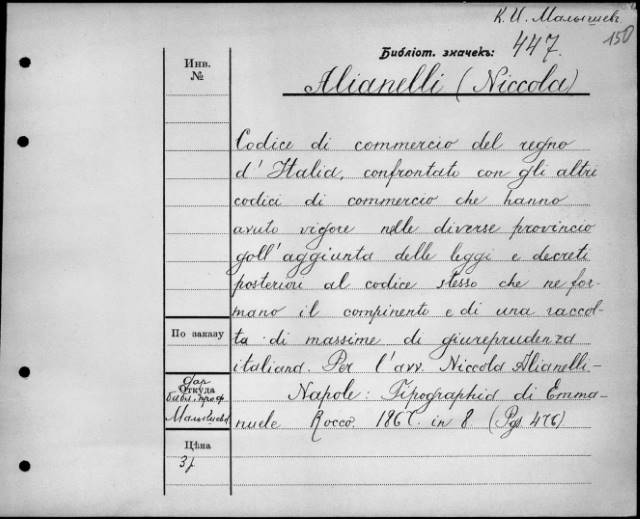 К. И. Малышев.
150
Библіот. значекъ: 447.
Инв.
№
Alianelli (Niccola)
Codice di commercio del regno
d'Italia, confrontato con gli altri
codici di commercio che hanno
avuto vigore nelle diverse provincio
coll'aggiunta delle leggi e decreti
posteriori al codice stesso che ne for-
mano il compinento e di una raccol-
ta di massime di giureprudenza
italiana. Per l'avv. Niccola Alianelli-
Napole: Tipographia di Emma-
nuele Rocco. 1867. in 8. (Pgs 476)
По заказу
дар
Откуда
библ. проф
Малышева
Цѣна
3р